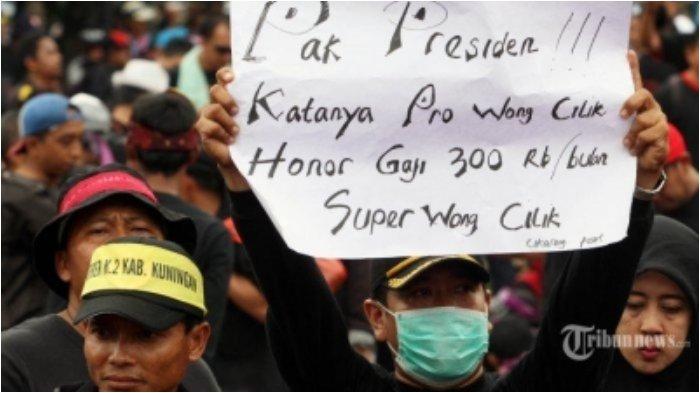 Pak Presiden !!!
Katanya Pro Wong Cilik
Honor Gaji 300 Rb/bulan
Super Wong Cilik
K.2 KAB. KUNINGAN
Tribunnews.com